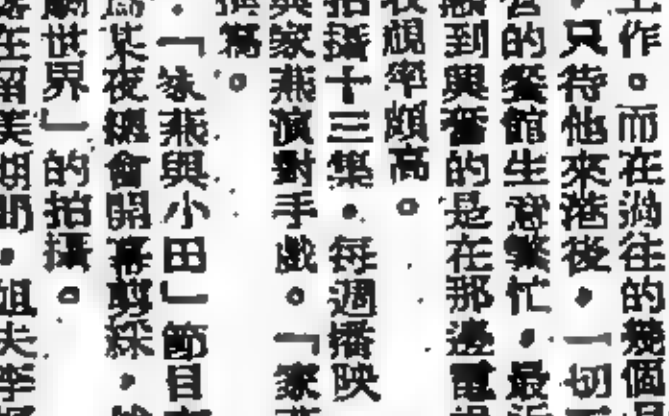 作。而在過往的幾個
只待他來港後，一切
的餐館生意繁忙，最
到興奮的是在那邊電
視率頗高。
拍攝十三集，每週播映
與家燕演對手戲。「家
寫。
，「家燕與小田」節目
某夜總會開幕剪綵，
世界」的拍攝。
在留美期間，姐夫李